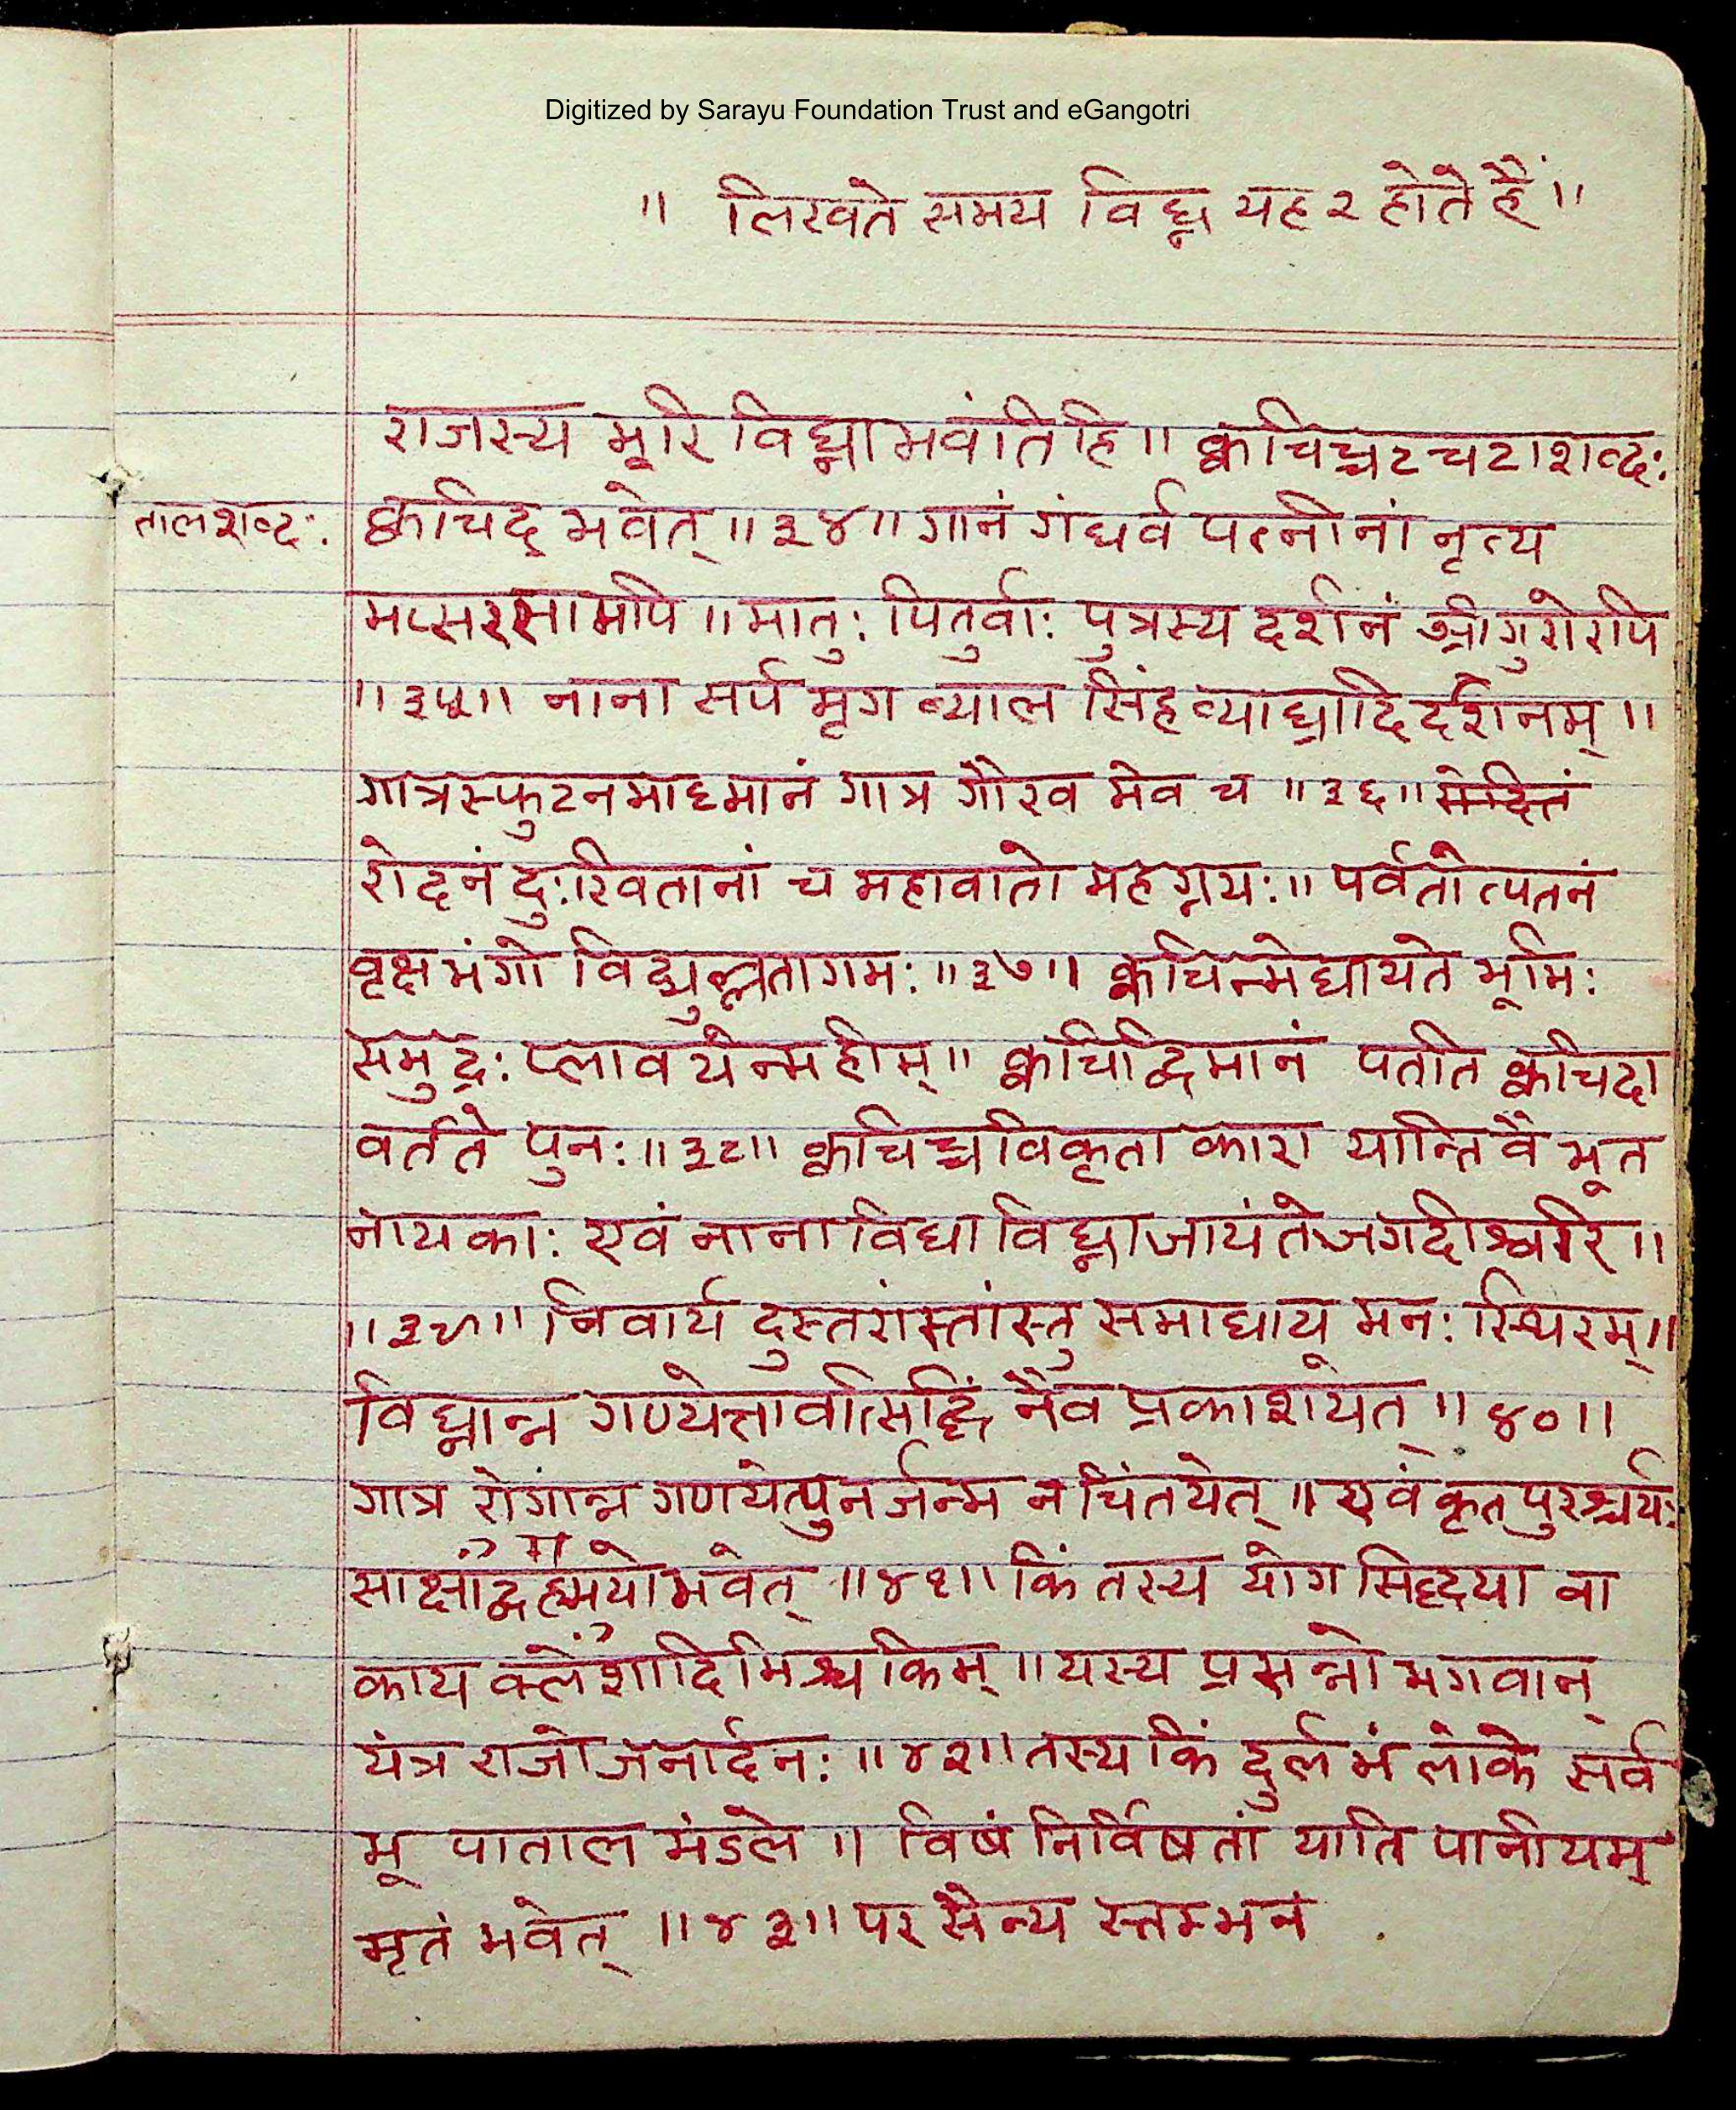 Digitized by Sarayu Foundation Trust and eGangotri
॥ लिखते समय विघ्न यह २ होते हैं ॥
राजस्य भूरि विघ्ना भवंति हि ॥ क्वचिच्चट चटा शब्दः
तालशब्दः क्वचिद् भवेत् ॥३४॥ गानं गंधर्व पत्नीनां नृत्य
मप्सरसामपि ॥ मातुः पितुर्वाः पुत्रस्य दर्शनं श्रीगुरोरपि
॥३५॥ नाना सर्प मृग व्याल सिंह व्याघ्रादि दर्शनम् ॥
गात्रस्फुटनमाध्मानं गात्र गौरव मेव च ॥३६॥
रोदनं दुःखितानां च महावातो महग्नयः ॥ पर्वतोत्पतनं
वृक्षभंगो विद्युल्लतागमः ॥३७॥ क्वचिन्मेघायते भूमिः
समुद्रः प्लावयेन्महीम् ॥ क्वचिद्विमानं पतति क्वचिदा
वर्तते पुनः ॥३८॥ क्वचिच्चविकृता कारा यान्ति वै भूत
नायकाः एवं नाना विधा विघ्ना जायंते जगदीश्वरि ॥
॥३९॥ निवार्य दुस्तरांस्तांस्तु समाधाय मनः स्थिरम् ॥
विघ्नान्न गण्येत्तावत्सिद्धिं नैव प्रकाशयेत् ॥४०॥
गात्र रोगान्न गणयेत्पुनर्जन्म न चिंतयेत् ॥ एवं कृत पुरश्चर्यः
साक्षाद्ब्रह्ममयो भवेत् ॥४१॥ किं तस्य योग सिद्ध्या वा
काय क्लेशादिभिश्च किम् ॥ यस्य प्रसन्नो भगवान्
यंत्र राजो जनार्दनः ॥४२॥ तस्य किं दुर्लभं लोके सर्व
भू पाताल मंडले ॥ विषं निर्विषतां याति पानीयम्
मृतं भवेत् ॥४३॥ पर सैन्य स्तम्भनं